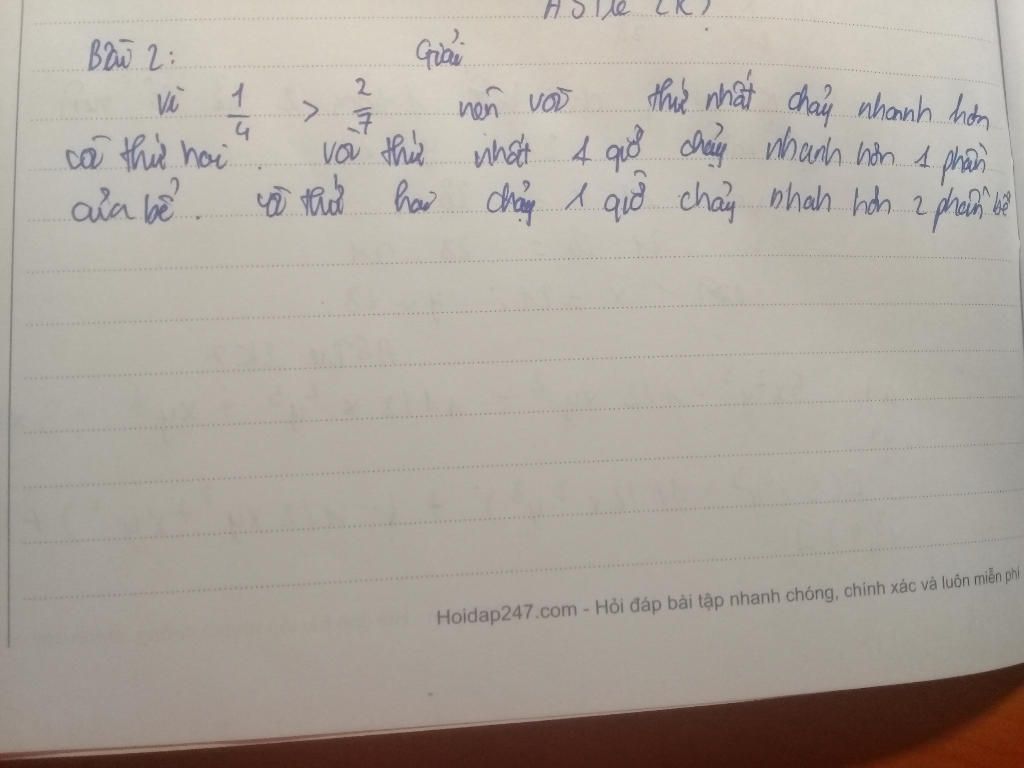 Bài 2: Giải
vì 1/4 > 2/7 nên vòi thứ nhất chảy nhanh hơn
vòi thứ hai. vòi thứ nhất 1 giờ chảy nhanh hơn 1 phần
của bể. vòi thứ hai chảy 1 giờ chảy nhah hơn 2 phần bể
Hoidap247.com - Hỏi đáp bài tập nhanh chóng, chính xác và luôn miễn phí